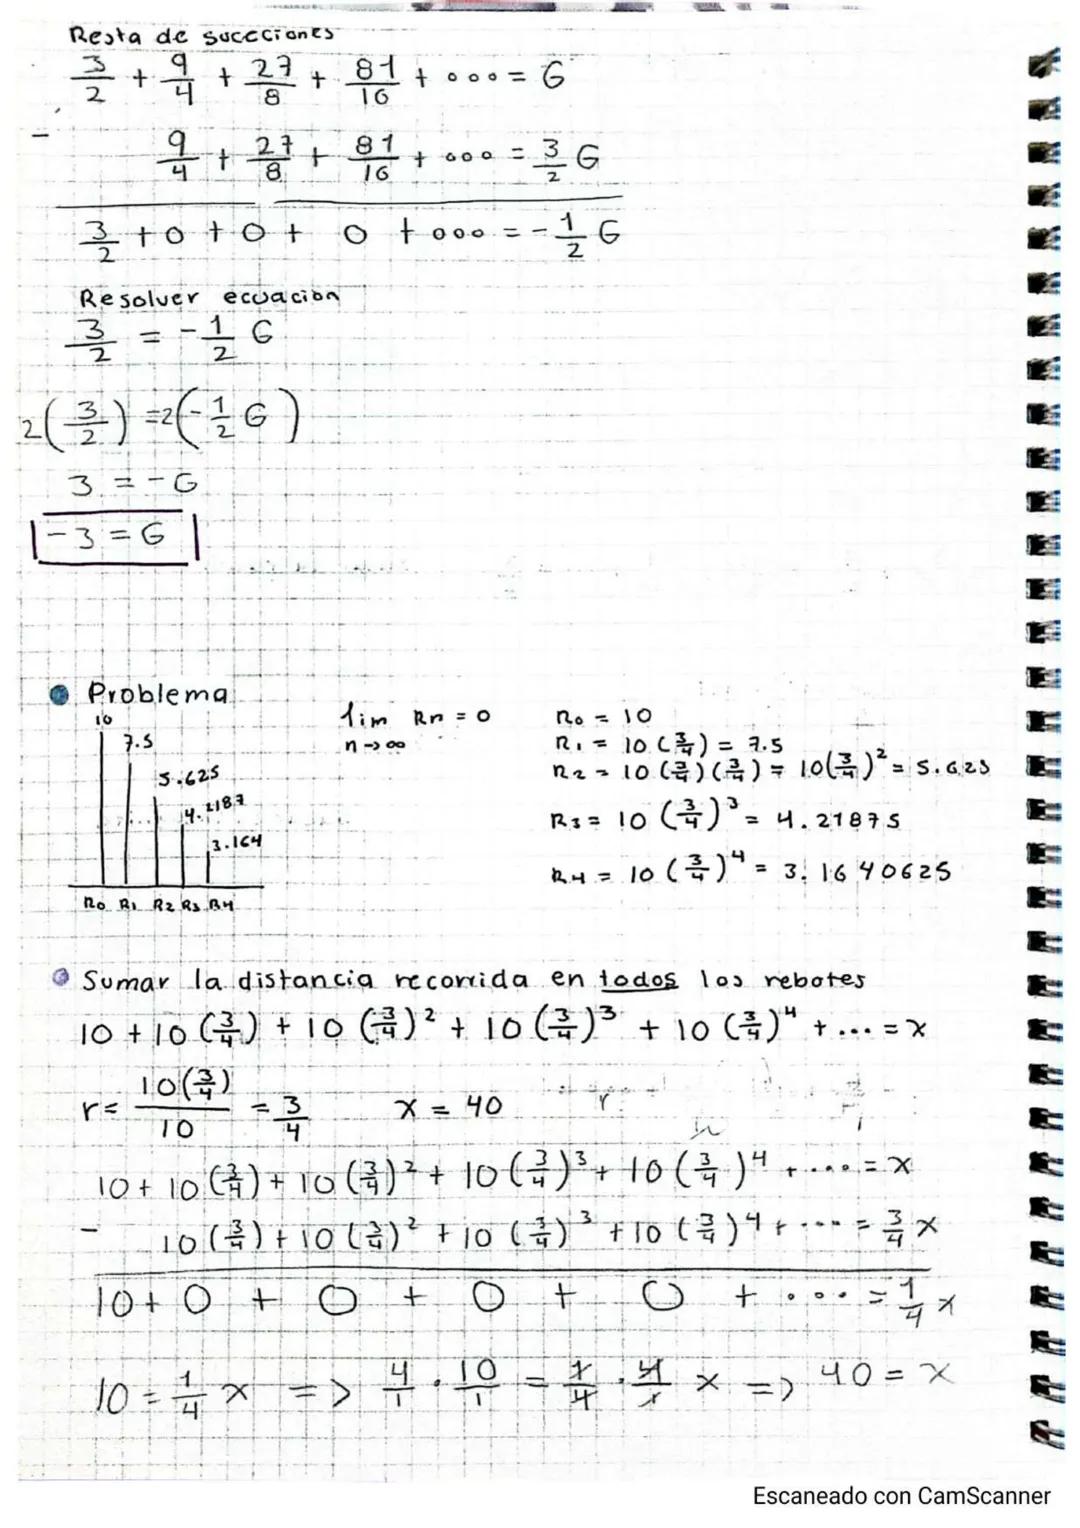 Resta de sucecciones
3/2 + 9/4 + 27/8 + 81/16 + ... = G
- 9/4 + 27/8 + 81/16 + ... = 3/2 G
3/2 + 0 + 0 + 0 + ... = - 1/2 G
Resolver ecuacion
3/2 = - 1/2 G
2(3/2) = 2(- 1/2 G)
3 = - G
-3 = G
Problema
10
7.5
5.625
4.2187
3.164
R0 R1 R2 R3 R4
lim Rn = 0
n→∞
R0 = 10
R1 = 10 (3/4) = 7.5
R2 = 10 (3/4)(3/4) = 10(3/4)² = 5.625
R3 = 10 (3/4)³ = 4.21875
R4 = 10 (3/4)⁴ = 3.1640625
Sumar la distancia recorrida en todos los rebotes
10 + 10 (3/4) + 10 (3/4)² + 10 (3/4)³ + 10 (3/4)⁴ + ... = x
r = 10(3/4)/10 = 3/4 x = 40
10 + 10 (3/4) + 10 (3/4)² + 10 (3/4)³ + 10 (3/4)⁴ + ... = x
- 10 (3/4) + 10 (3/4)² + 10 (3/4)³ + 10 (3/4)⁴ + ... = 3/4 x
10 + 0 + 0 + 0 + 0 + ... = 1/4 x
10 = 1/4 x => 4/1 · 10/1 = 1/4 · 4/1 x => 40 = x
Escaneado con CamScanner